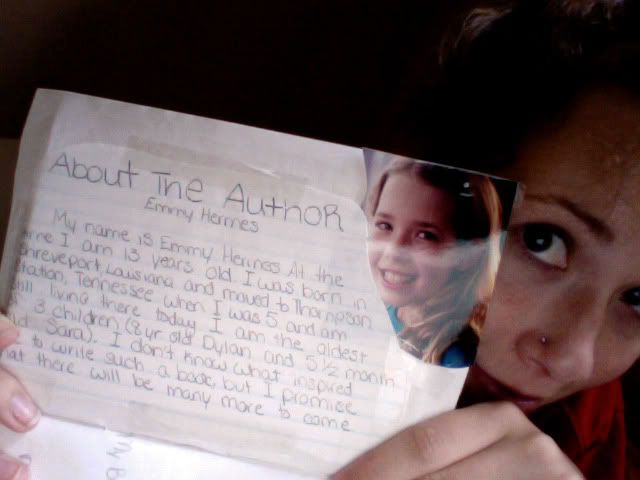 About The Author
Emmy Hermes
My name is Emmy Hermes At the
time I am 13 years old I was born in
Shreveport, Lousiana and moved to Thompson
Station, Tennessee when I was 5 and am
still living there today I am the oldest
3 children (8 yr old Dylan and 5 1/2 month
old Sara). I don't know what inspired
to write such a book, but I promise
that there will be many more to come
My B